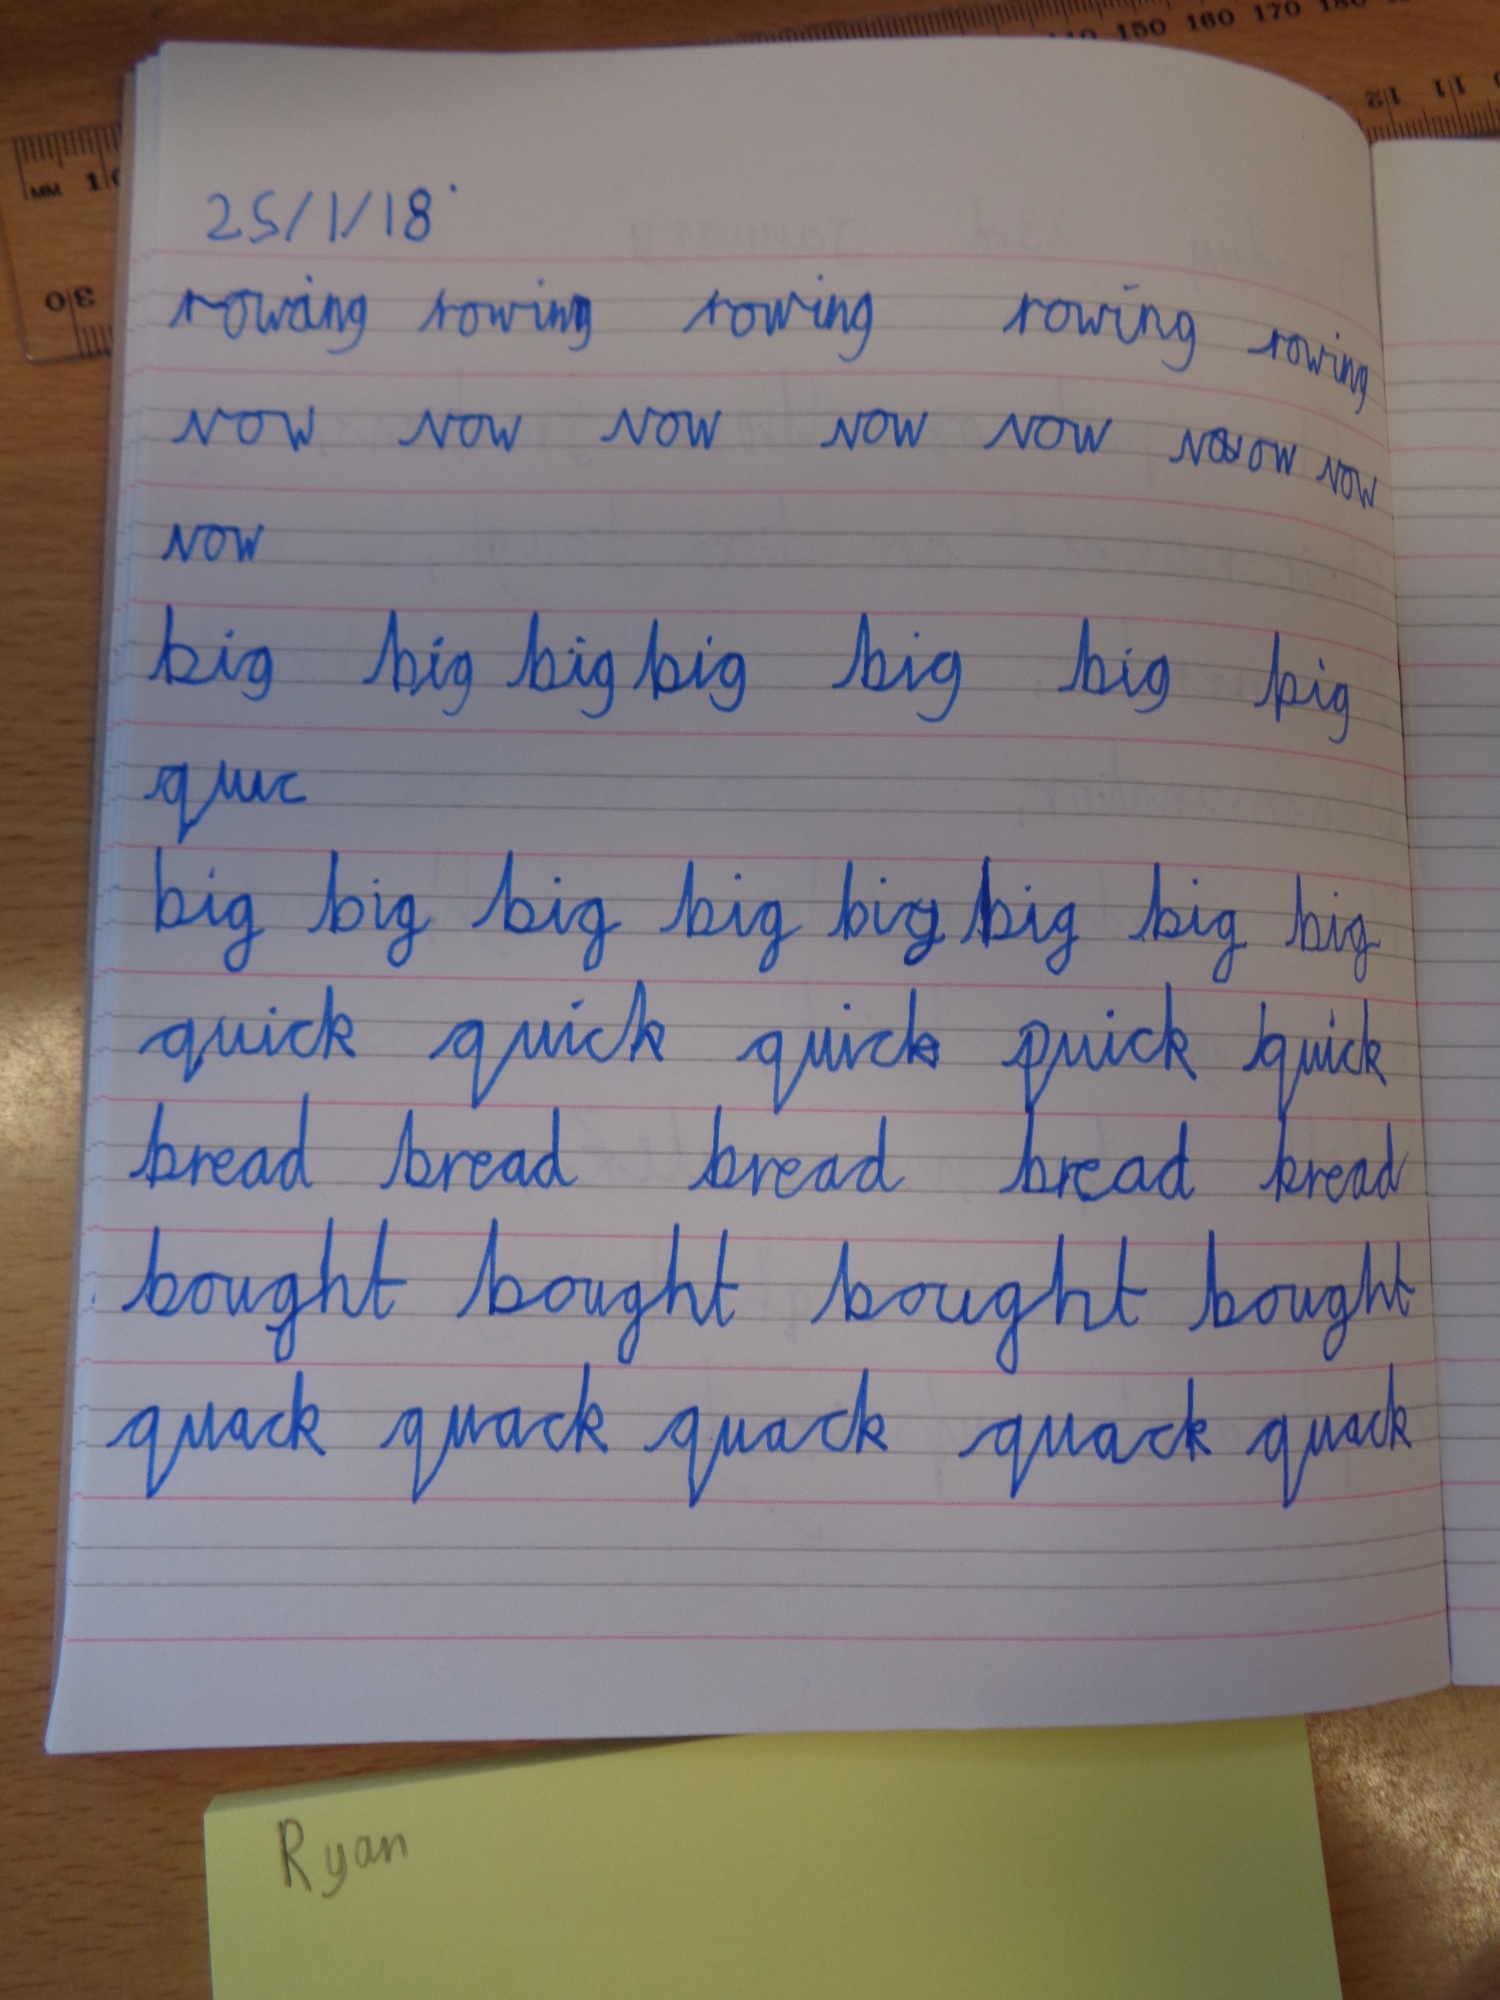 140 150 160 170 180
12 11
MM 10
30
25/1/18
rowing rowing rowing rowing rowing
now now now now now now now
now
big big big big big big big
quic
big big big big big big big big
quick quick quick quick quick
bread bread bread bread bread
bought bought bought bought
quack quack quack quack quack
Ryan